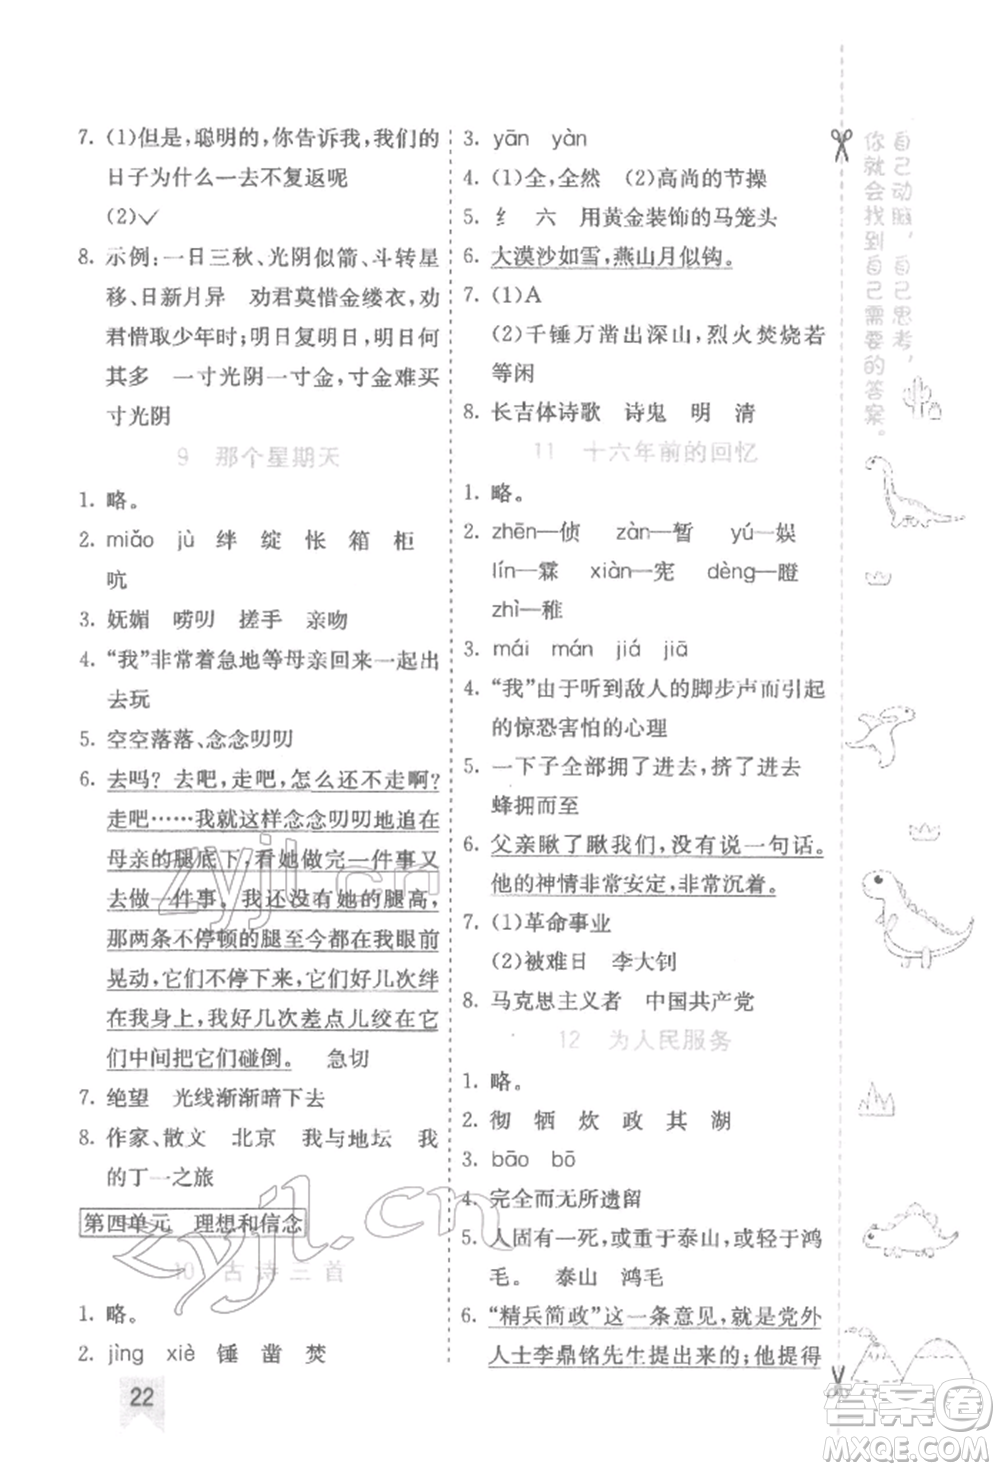 7. (1)但是,聪明的,你告诉我,我们的
日子为什么一去不复返呢
(2)✓
8. 示例:一日三秋、光阴似箭、斗转星
移、日新月异 劝君莫惜金缕衣,劝
君惜取少年时;明日复明日,明日何
其多 一寸光阴一寸金,寸金难买
寸光阴
9 那个星期天
1. 略。
2. miǎo jù 绊 绽 怅 箱 柜
吭
3. 妩媚 唠叨 搓手 亲吻
4. “我”非常着急地等母亲回来一起出
去玩
5. 空空落落、念念叨叨
6. 去吗? 去吧,走吧,怎么还不走啊?
走吧……我就这样念念叨叨地追在
母亲的腿底下,看她做完一件事又
去做一件事。我还没有她的腿高,
那两条不停顿的腿至今都在我眼前
晃动,它们不停下来,它们好几次绊
在我身上,我好几次差点儿绞在它
们中间把它们碰倒。 急切
7. 绝望 光线渐渐暗下去
8. 作家、散文 北京 我与地坛 我
的丁一之旅
第四单元 理想和信念
10 古诗三首
1. 略。
2. jìng xiè 锤 凿 焚
22
3. yān yàn
4. (1)全,全然 (2)高尚的节操
5. 纟 六 用黄金装饰的马笼头
6. 大漠沙如雪,燕山月似钩。
7. (1)A
(2)千锤万凿出深山,烈火焚烧若
等闲
8. 长吉体诗歌 诗鬼 明 清
11 十六年前的回忆
1. 略。
2. zhēn—侦 zàn—暂 yú—娱
lín—霖 xiàn—宪 dèng—瞪
zhì—稚
3. mái mán jiá jiā
4. “我”由于听到敌人的脚步声而引起
的惊恐害怕的心理
5. 一下子全部拥了进去,挤了进去
蜂拥而至
6. 父亲瞅了瞅我们,没有说一句话。
他的神情非常安定,非常沉着。
7. (1)革命事业
(2)被难日 李大钊
8. 马克思主义者 中国共产党
12 为人民服务
1. 略。
2. 彻 牺 炊 政 其 湖
3. bāo bō
4. 完全而无所遗留
5. 人固有一死,或重于泰山,或轻于鸿
毛。 泰山 鸿毛
6. “精兵简政”这一条意见,就是党外
人士李鼎铭先生提出来的;他提得
自己动脑,自己思考,
你就会找到自己需要的答案。
zyjl.cn
zyjl.cn
答案圈
MXQE.COM